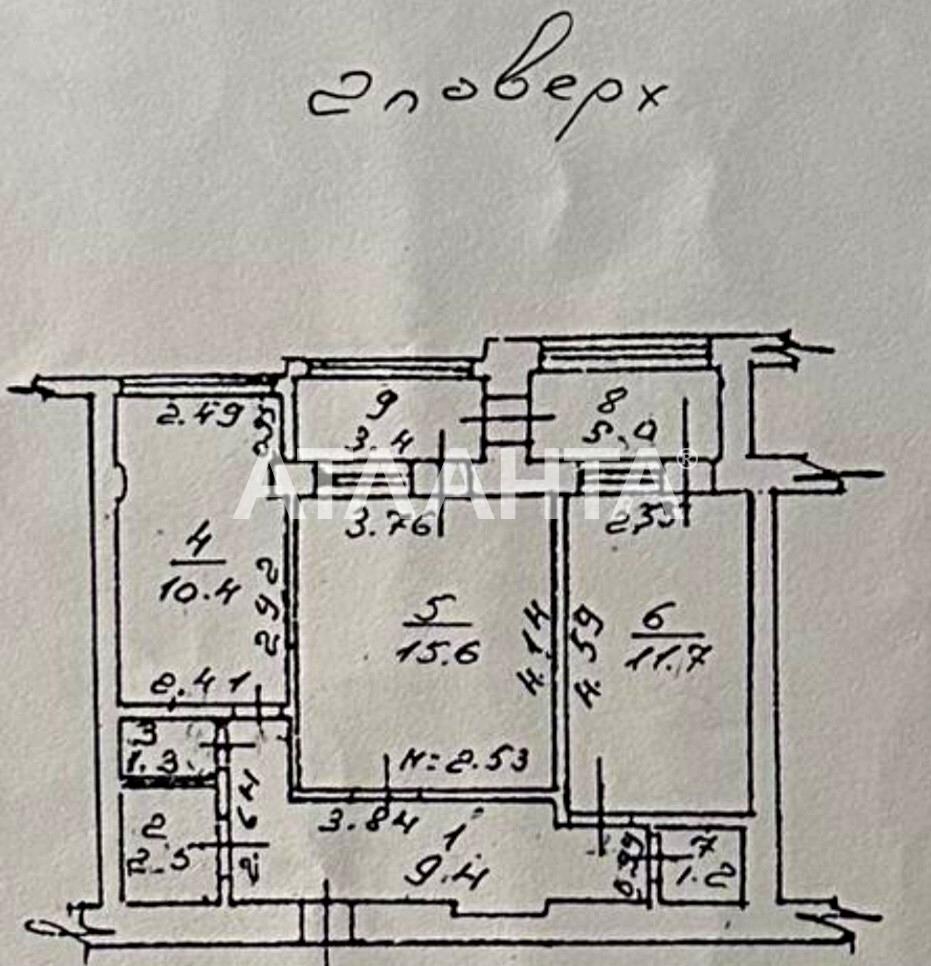 2 поверх
9
3.4
8
5.0
2.49
АТЛАНТА®
3.76
4
10.4
2.92
5
15.6
4.14
4.59
6
11.7
2.41
3
1.3
H=2.53
2.64
3.84
1
9.4
2
2.5
0.99
7
1.2